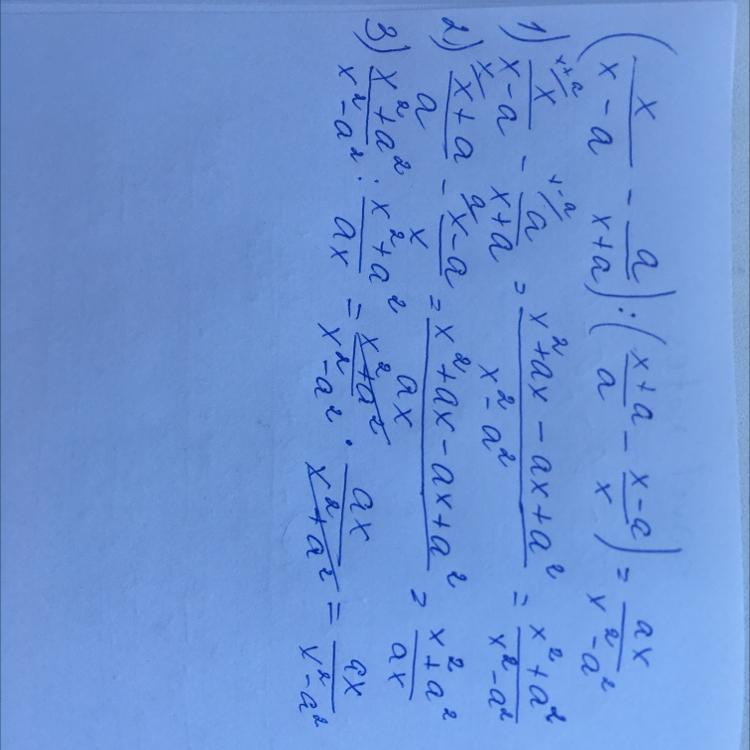 (x/(x-a) - a/(x+a)) : ((x+a)/a - (x-a)/x) = ax/(x²-a²)
1) x/(x-a) ^(x+a) - a/(x+a) ^(x-a) = (x²+ax-ax+a²)/(x²-a²) = (x²+a²)/(x²-a²)
2) ^x/ (x+a)/a - ^a/ (x-a)/x = (x²+ax-ax+a²)/(ax) = (x²+a²)/(ax)
3) (x²+a²)/(x²-a²) : (x²+a²)/(ax) = (x²+a²)/(x²-a²) · ax/(x²+a²) = ax/(x²-a²)